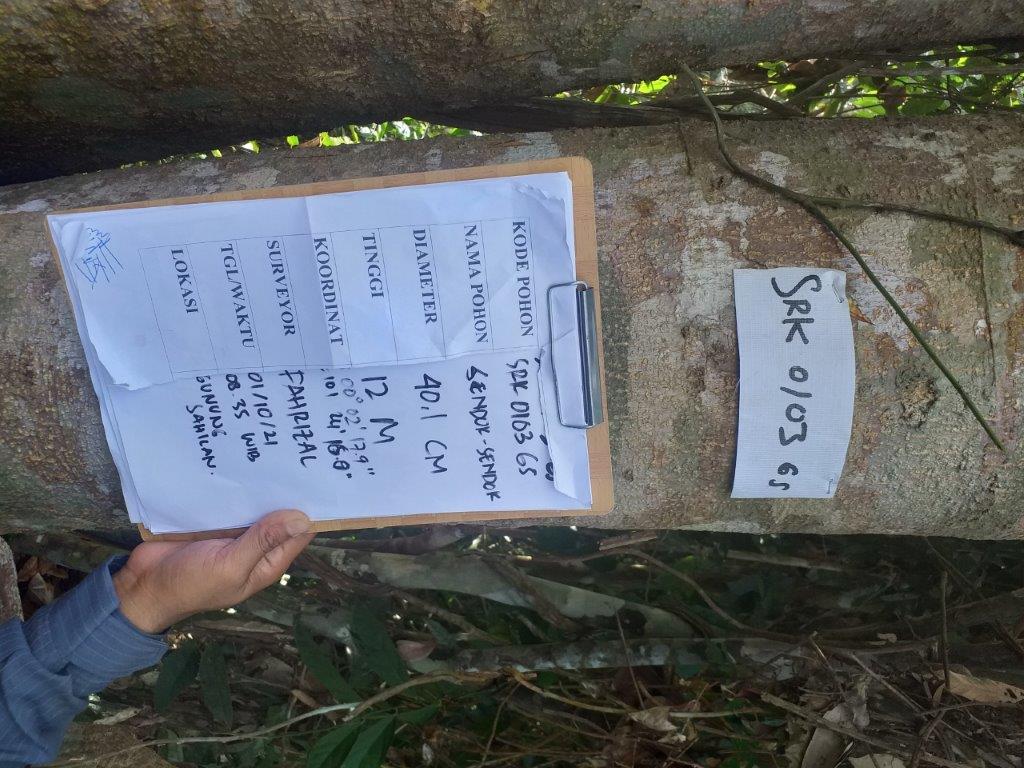 SRK 0103 GS
KODE POHON SRK 0103 GS
NAMA POHON SENDOK-SENDOK
DIAMETER 40.1 CM
TINGGI 12 M
KOORDINAT 00° 02' 17.9"
101 24'
SURVEYOR FAHRIZAL
TGL/WAKTU 01/10/21
08.35 WIB
LOKASI GUNUNG
SAHILAN.